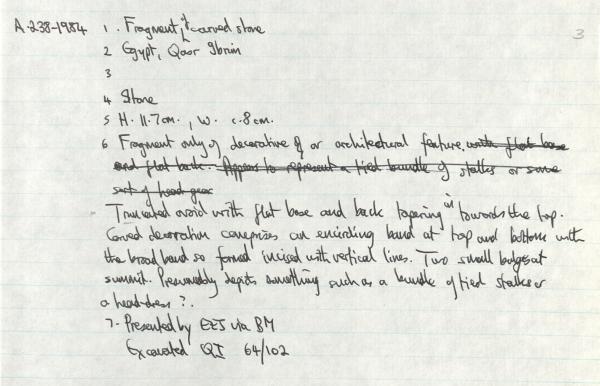 A.238-1984 1. Fragment, of carved stone
3
2 Egypt, Qasr Ibrim
3
4 Stone
5 H. 11.7cm., W. c.8cm.
6 Fragment only of decorative or architectural feature, with flat base
and flat back. Appears to represent a tied bundle of stalks or some
sort of head gear
Truncated ovoid with flat base and back tapering in towards the top.
Carved decoration comprises an encircling band at top and bottom with
the broad band so formed incised with vertical lines. Two small bulges at
summit. Presumably depicts something such as a bundle of tied stalks or
a head-dress?.
7. Presented by EES via BM
Excavated QI 64/102